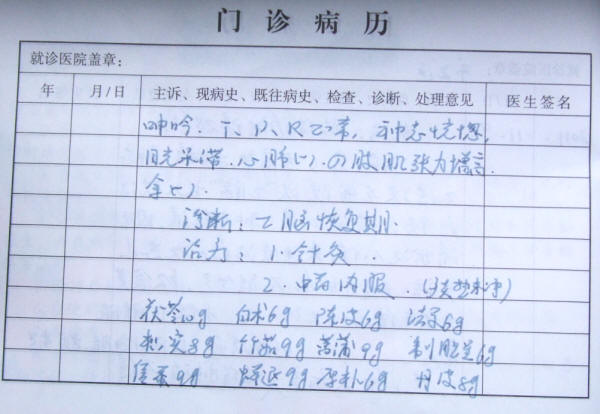 门诊病历
就诊医院盖章：
年 月/日 主诉、现病史、既往病史、检查、诊断、处理意见 医生签名
呻吟. T、P、R正常, 神志恍惚,
目光呆滞. 心肺(-). 四肢肌张力增高.
诊断: 乙脑恢复期.
治疗: 1. 针灸.
2. 中药内服.
茯苓10g 白术6g 陈皮6g 法夏6g
枳实8g 竹茹9g 菖蒲9g 制胆星6g
9g 蝉退9g 厚朴6g 丹皮8g